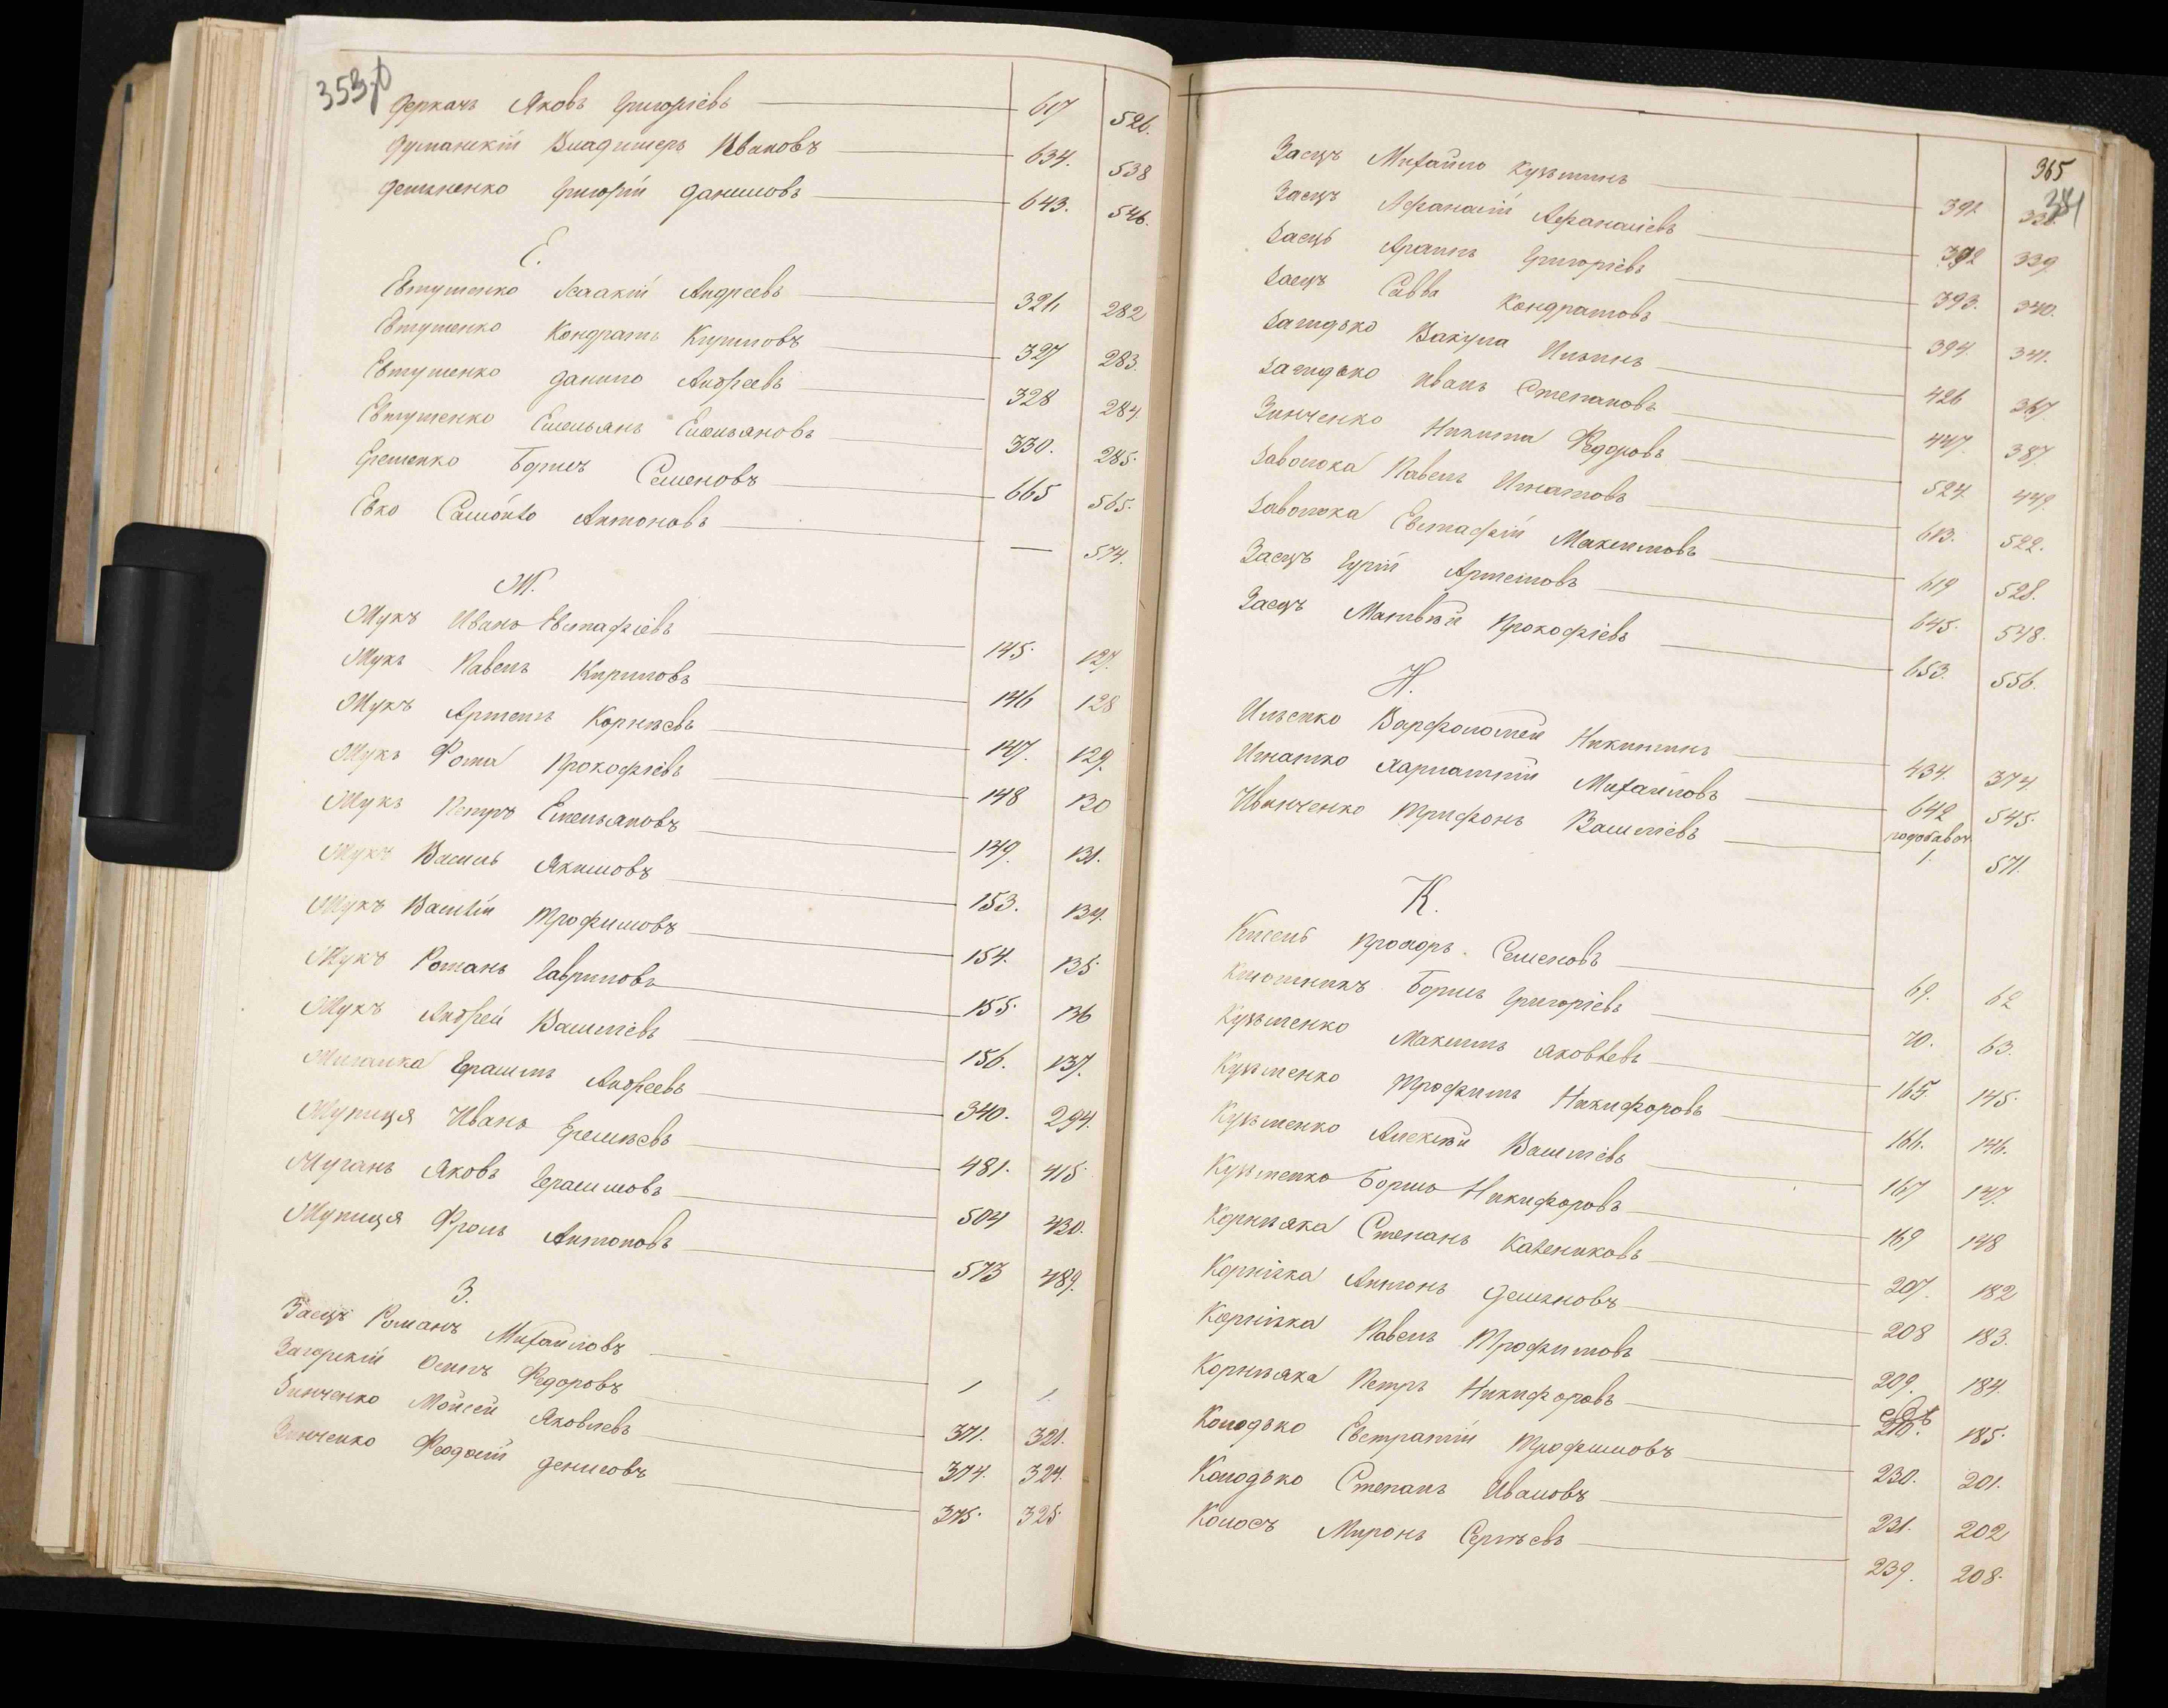 Деркачъ Яковъ Григорiевъ 617 526.
Думанскiй Владимеръ Ивановъ 634. 538
Демяненко Григорiй Даниловъ 643. 546.
Е.
Евтушенко Исаакiй Андреевъ 326 282
Евтушенко Кондратъ Кириловъ 327 283.
Евтушенко Данило Андреевъ 328 284.
Евтушенко Емельянъ Емельяновъ 330. 285.
Ерешенко Борисъ Семеновъ 665 565.
Евко Самойло Антоновъ — 574.
Ж.
Жукъ Иванъ Евстафiевъ 145. 127.
Жукъ Павелъ Кириловъ 146 128
Жукъ Артемъ Корнѣевъ 147. 129.
Жукъ Фома Прокофiевъ 148 130
Жукъ Петръ Емельяновъ 149. 131.
Жукъ Василь Якимовъ 153. 134.
Жукъ Василiй Трофимовъ 154. 135
Жукъ Романъ Гавриловъ 155. 136
Жукъ Андрей Василiевъ 156. 137.
Герасимъ Андреевъ 340. 294.
Жупиця Иванъ Еремѣевъ 481. 415
Жуганъ Яковъ Герасимовъ 504 430.
Жупиця Фролъ Антоновъ 573 489.
З.
Заецъ Романъ Михайловъ 1 1.
Загорскiй Осипъ Федоровъ 371. 321.
Зинченко Мойсей Яковлевъ 374. 324.
Зинченко Феодосiй Денисовъ 375. 325
365
381
Заецъ Михайло Кузьминъ 391 338.
Заецъ Афанасiй Афанасiевъ 392 339.
Заецъ Аврамъ Григорiевъ 393. 340.
Заецъ Савва Кондратовъ 394. 341.
Загидько Вакула Ильинъ 426 367.
Загидько Иванъ Степановъ 447. 387.
Зинченко Никита Федоровъ 524. 449.
Заволока Павелъ Игнатовъ 613. 522.
Заволока Евстафiй Максимовъ 619 528.
Заецъ Гурiй Артемовъ 645. 548.
Заецъ Матвѣй Прокофiевъ 653. 556.
И.
Ильенко Варфоломей Никитинъ 434. 374.
Игнатко Харлампiй Михайловъ 642 545.
Иванченко Трифонъ Василiевъ подобавоч. 1. 571.
К.
Кисель Прохоръ Семеновъ 69. 62
Клюшникъ Борисъ Григорiевъ 70. 63.
Кузьменко Максимъ Яковлевъ 165. 145.
Кузьменко Трофимъ Никифоровъ 166. 146.
Кузьменко Алексѣй Василiевъ 167 147.
Кузьменко Борисъ Никифоровъ 169 148
Корнѣяка Степанъ Калениковъ 207. 182
Корнiяка Антонъ Демяновъ 208 183.
Корнiяка Павелъ Трофимовъ 209. 184.
Корнѣяка Петръ Никифоровъ 210. 185.
Колодько Евстратiй Трофимовъ 230. 201.
Колодько Степанъ Ивановъ 231. 202
Колосъ Миронъ Сергѣевъ 239. 208.